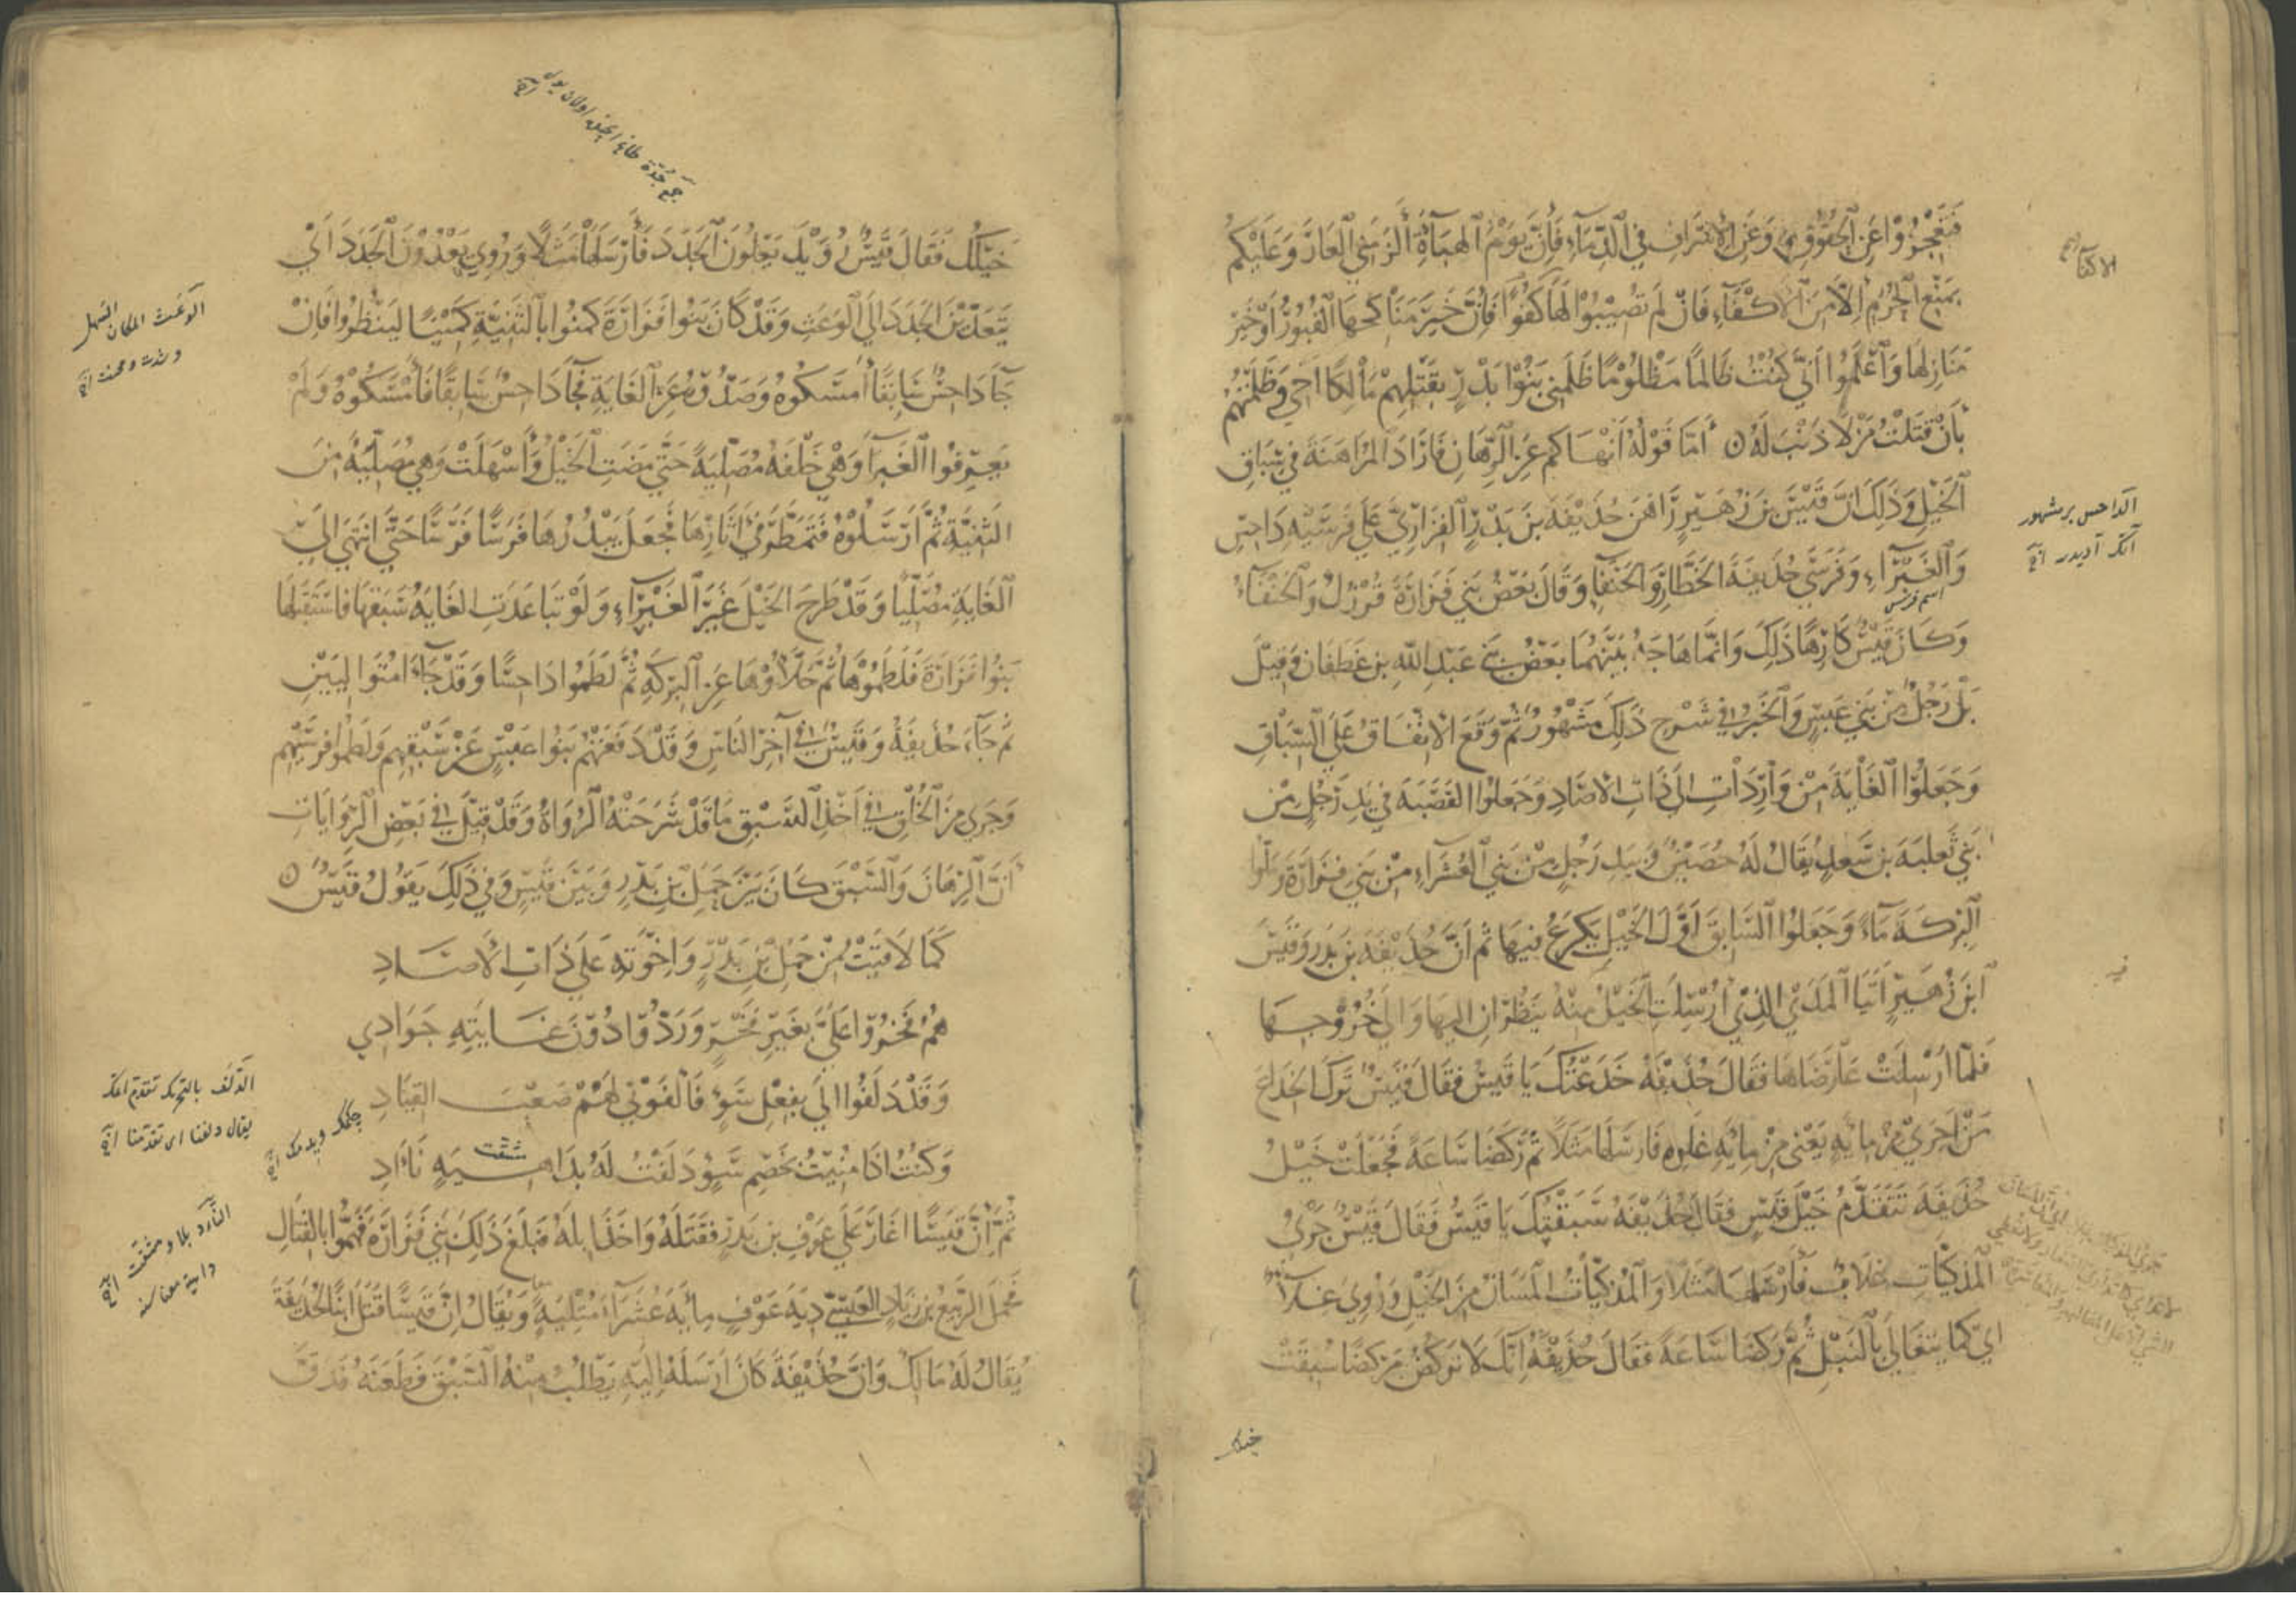 فتعجزوا عن الحقوق وعن الاسراف في الدماء فإن يوم الهباءة ألزمني العار وعليكم
بمنع الحرم إلا من الاكفاء فان لم تصيبوا لها كفوا فإن خير مناكحها القبور أو خير
منازلها واعلموا أني كنت ظالما مظلوما ظلمني بنو بدر بقتلهم مالكا اخي وظلمتهم
بأن قتلت من لا ذنب له أما قوله أنهاكم عن الرهان فأراد المراهنة في سباق
الخيل وذلك ان قيس بن زهير راهن حذيفة بن بدر الفزاري على فرسيه داحس
والغبراء وفرسي حذيفة الخطار والحنفاء وقال بعض بني فزارة قرزل والحنفاء
اسم فرس
وكان قيس كارها ذلك وانما هاجه بينهما بعض بني عبد الله بن غطفان وقيل
بل رجل من بني عبس والخبر في شرح ذلك مشهور ثم وقع الاتفاق على السباق
وجعلوا الغاية من واردات الى ذات الاصاد وجعلوا القصبة في يد رجل من
بني ثعلبة بن سعد يقال له حصين وبيد رجل من بني العشراء من بني فزارة وملوا
البركة ماء وجعلوا السابق أول الخيل يكرع فيها ثم ان حذيفة بن بدر وقيس
ابن زهير أتيا المدى الذي أرسلت الخيل منه ينظران اليها والى خروجها
فلما ارسلت عارضاها فقال حذيفة خدعتك يا قيس فقال قيس ترك الخداع
من اجرى من مايه يعني من مايه غلوه فارسلها مثلا ثم ركضا ساعة فجعلت خيل
حذيفة تتقدم خيل قيس فقال حذيفة سبقتك يا قيس فقال قيس جرى
المذكيات غلاب فأرسلها مثلا والمذكيات المسان من الخيل وروي غلاء
اي كما يتغالى بالنبل ثم ركضا ساعة فقال حذيفة إنك لا تركض مركضا سبقت
خيلك
الداحس بر مشهور
آتك آديدر
خيلك فقال قيس رويد يعلون الجدد فأرسلها مثلا وروي يعدون الجدد أي
يتعدين الجدد الى الوعث وقد كان بنوا فزارة كمنوا بالثنية كمينا لينظروا فان
جاء داحس سابقا أمسكوه وصدوه عن الغاية فجاء داحس سابقا فأمسكوه ولم
يعرفوا الغبراء وهي خلفه مصلية حتى مضت الخيل وأسهلت وهي مصليه من
الثنية ثم أرسلوه فتمطر في اثارها فجعل يبدرها فرسا فرسا حتى انتهى الى
الغاية مصليا وقد طرح الخيل غير الغبراء ولو تباعدت الغاية سبقها فاستقبلها
بنوا فزارة فلطموها ثم حلأوها عن البركه ثم لطموا داحسا وقد جاءا متواليين
ثم جاء حذيفة وقيس في آخر الناس وقد دفعتهم بنوا عبس عن سبقهم ولطموا فرسيهم
وجرى من الخلق في أخذ السبق ما قد شرحته الرواة وقد قيل في بعض الروايات
أن الرهان والسبق كان بين حمل بن بدر وبين قيس وفي ذلك يقول قيس
كما لاقيت من حمل بن بدر وإخوته على ذات الأصاد
هم فخروا علي بغير فخر وردوا دون غايته جوادي
وقد دلفوا الي بفعل سوء فألفوني لهم صعب القياد
وكنت اذا منيت بخصم سوء دلفت له بداهية نآد
ثم إن قيسا اغار على عوف بن بدر فقتله واخذ ابله فبلغ ذلك بني فزارة فهموا بالقتال
فحمل الربيع بن زياد العبسي دية عوف مايه عشراء متليه ويقال إن قيسا قتل ابنا لحذيفة
يقال له مالك وان حذيفة كان ارسله اليه يطلب منه السبق فطعنه فدق
الوعث المكان السهل
الدلف بالتحريك تقدم
يقال دلفنا اي تقدمنا